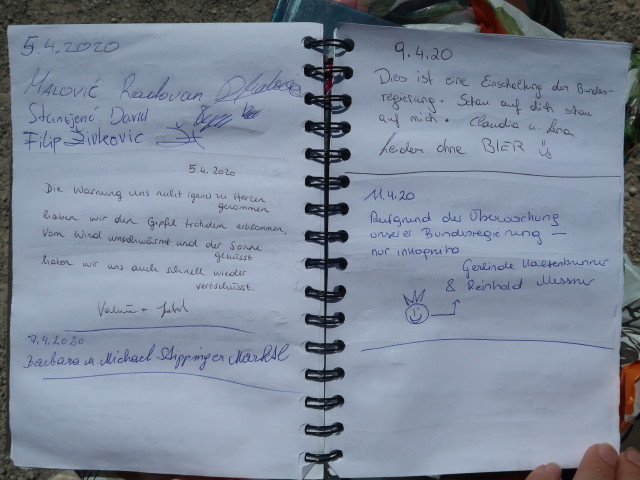 5.4.2020
MALOVIĆ Radovan
Stanojević David
Filip Živkovic
5.4.2020
Die Warnung uns nicht (ganz) zu Herzen
genommen
haben wir den Gipfel trotzdem erklommen,
Vom Wind umschwärmt und der Sonne
geküsst
haben wir uns auch schnell wieder
vertschüsst.
7.4.2020
Barbara u. Michael Stippinger Marktl
9.4.20
Dies ist eine Einschaltung der Bundes-
regierung. Schau auf dich schau
auf mich. Claudia u. Lena
Leider ohne BIER
11.4.20
Aufgrund der Überwachung
unserer Bundesregierung —
nur inkognito
Gerlinde Kaltenbrunner
& Reinhold Messner